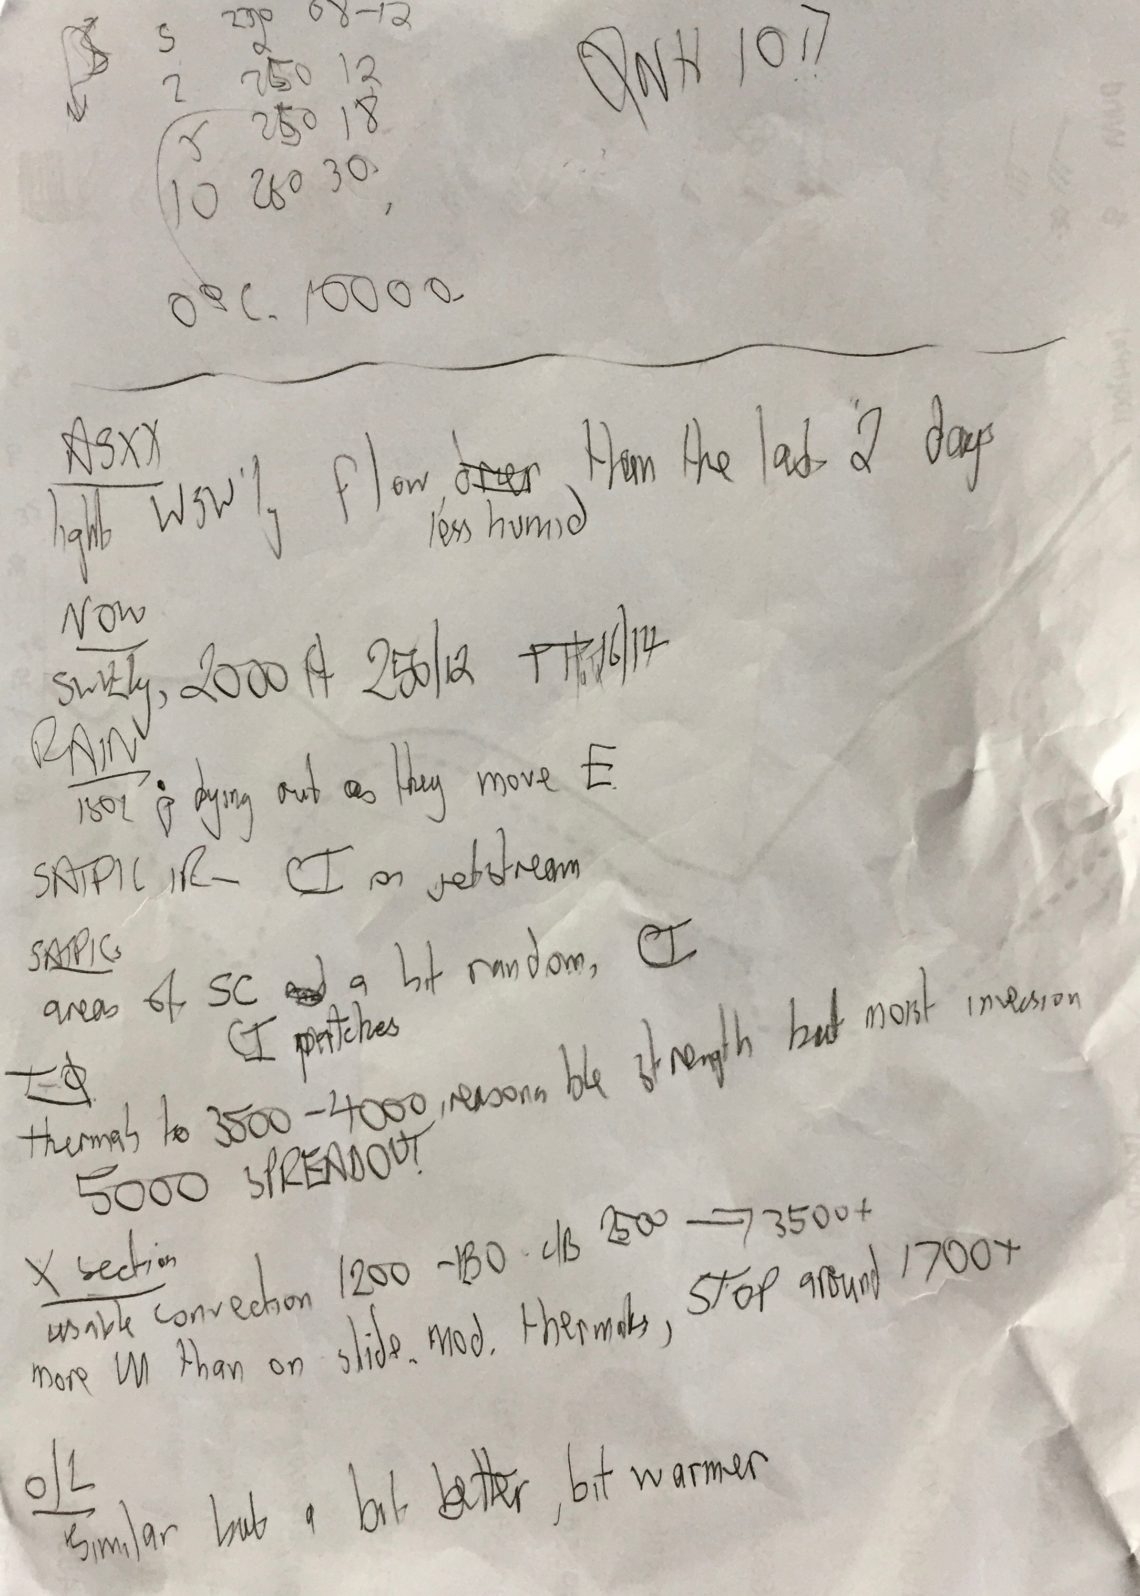 S 250 08-12
2 250 12
5 250 18
10 260 30
QNH 1017
0°C. 10000
ASXX
light WSW'ly flow, than the last 2 days
less humid
NOW
SW'ly, 2000 ft 250/12 TT 16/14
RAIN
dying out as they move E
SATPIC IR- CI on jetstream
SATPIC
areas of SC a bit random, CI
CI patches
T-Φ
thermals to 3500-4000, reasonable strength but moist inversion
5000 SPREADOUT!
X section
usable convection 1200 -1300 c/B 2500 → 3500+
more than on slide. mod. thermals, STOP around 1700+
O/L
Similar but a bit better, bit warmer